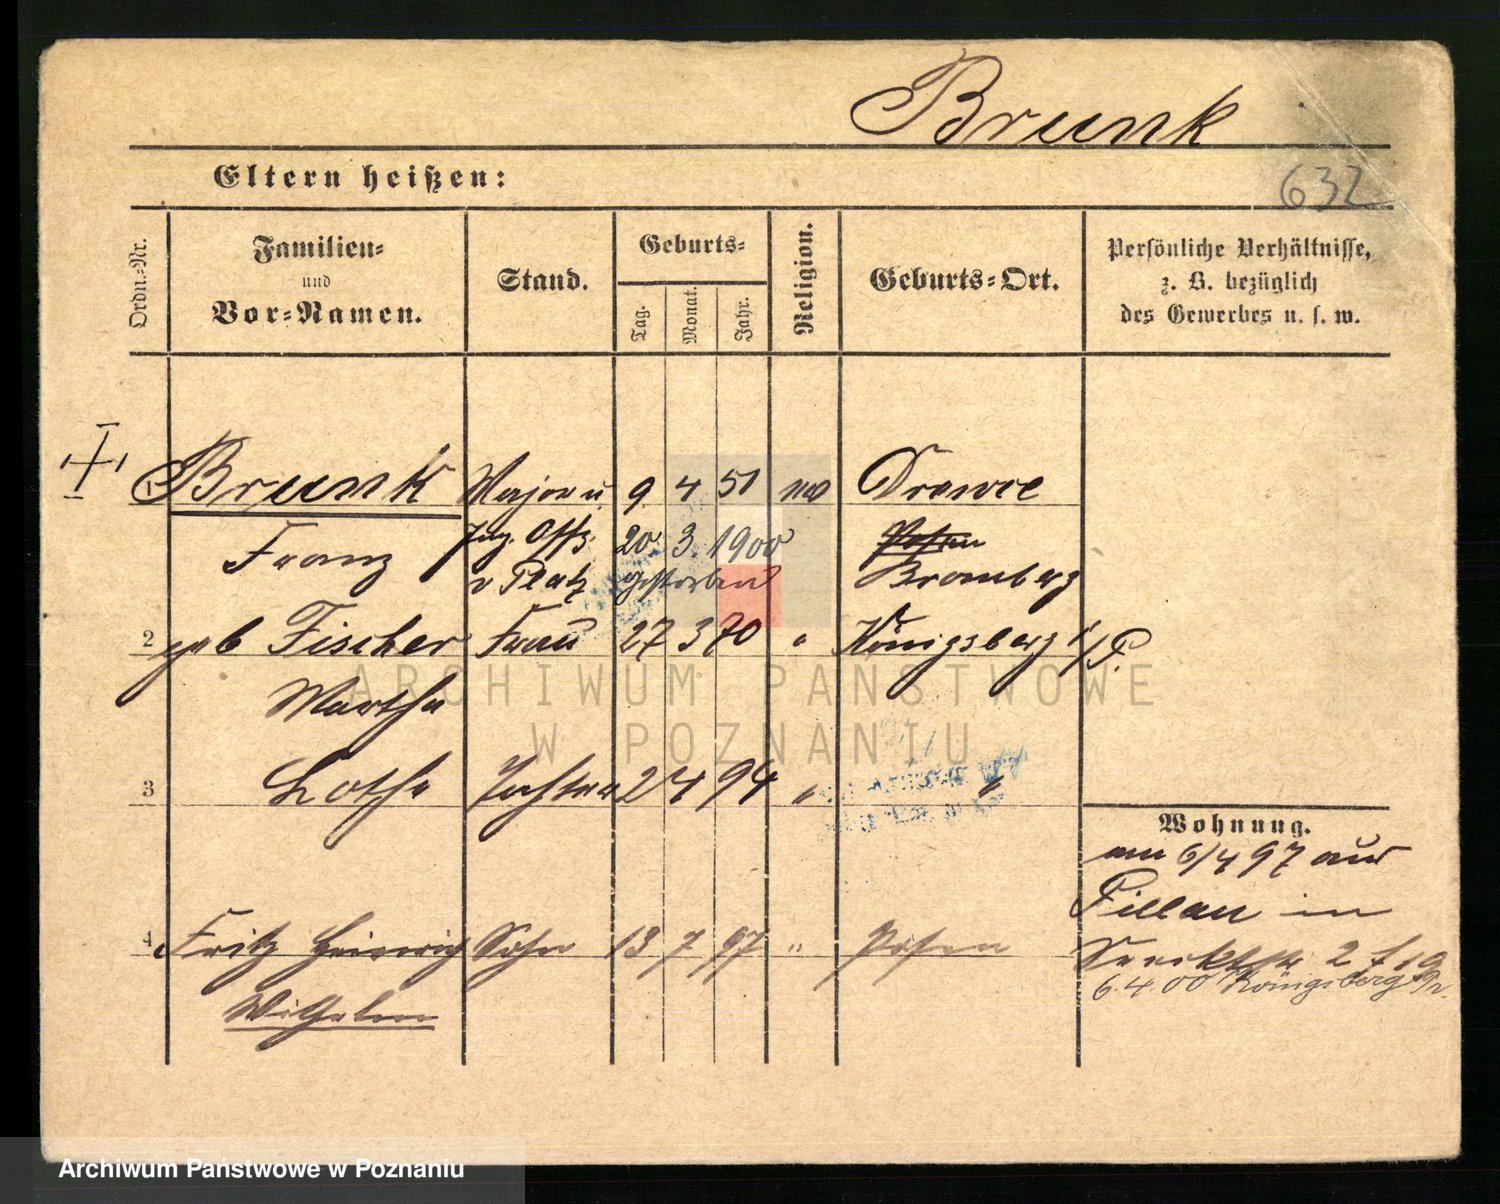 Brunk
632
Eltern heißen:
Ordn.-Nr.
Familien-
und
Vor-Namen.
Stand.
Geburts-
Tag.
Monat.
Jahr.
Religion.
Geburts-Ort.
Persönliche Verhältnisse,
z. B. bezüglich
des Gewerbes u. s. w.
1 Brunk Major u. 9 4 51 ev
Franz Ing. Offz. 20. 3. 1900 Posen
v Platz gestorben Bromberg
2 geb Fischer Frau 27 3 70 " Königsberg i/P.
Martha
3 Tochter 2 4 94 " "
Wohnung.
am 6/4 97 aus
Pillau in
4 Fritz Heinrich Sohn 13 7 97 " Posen
6.4.00 Königsberg i/Pr.
Wilhelm
ARCHIWUM PAŃSTWOWE
W POZNANIU
Archiwum Państwowe w Poznaniu